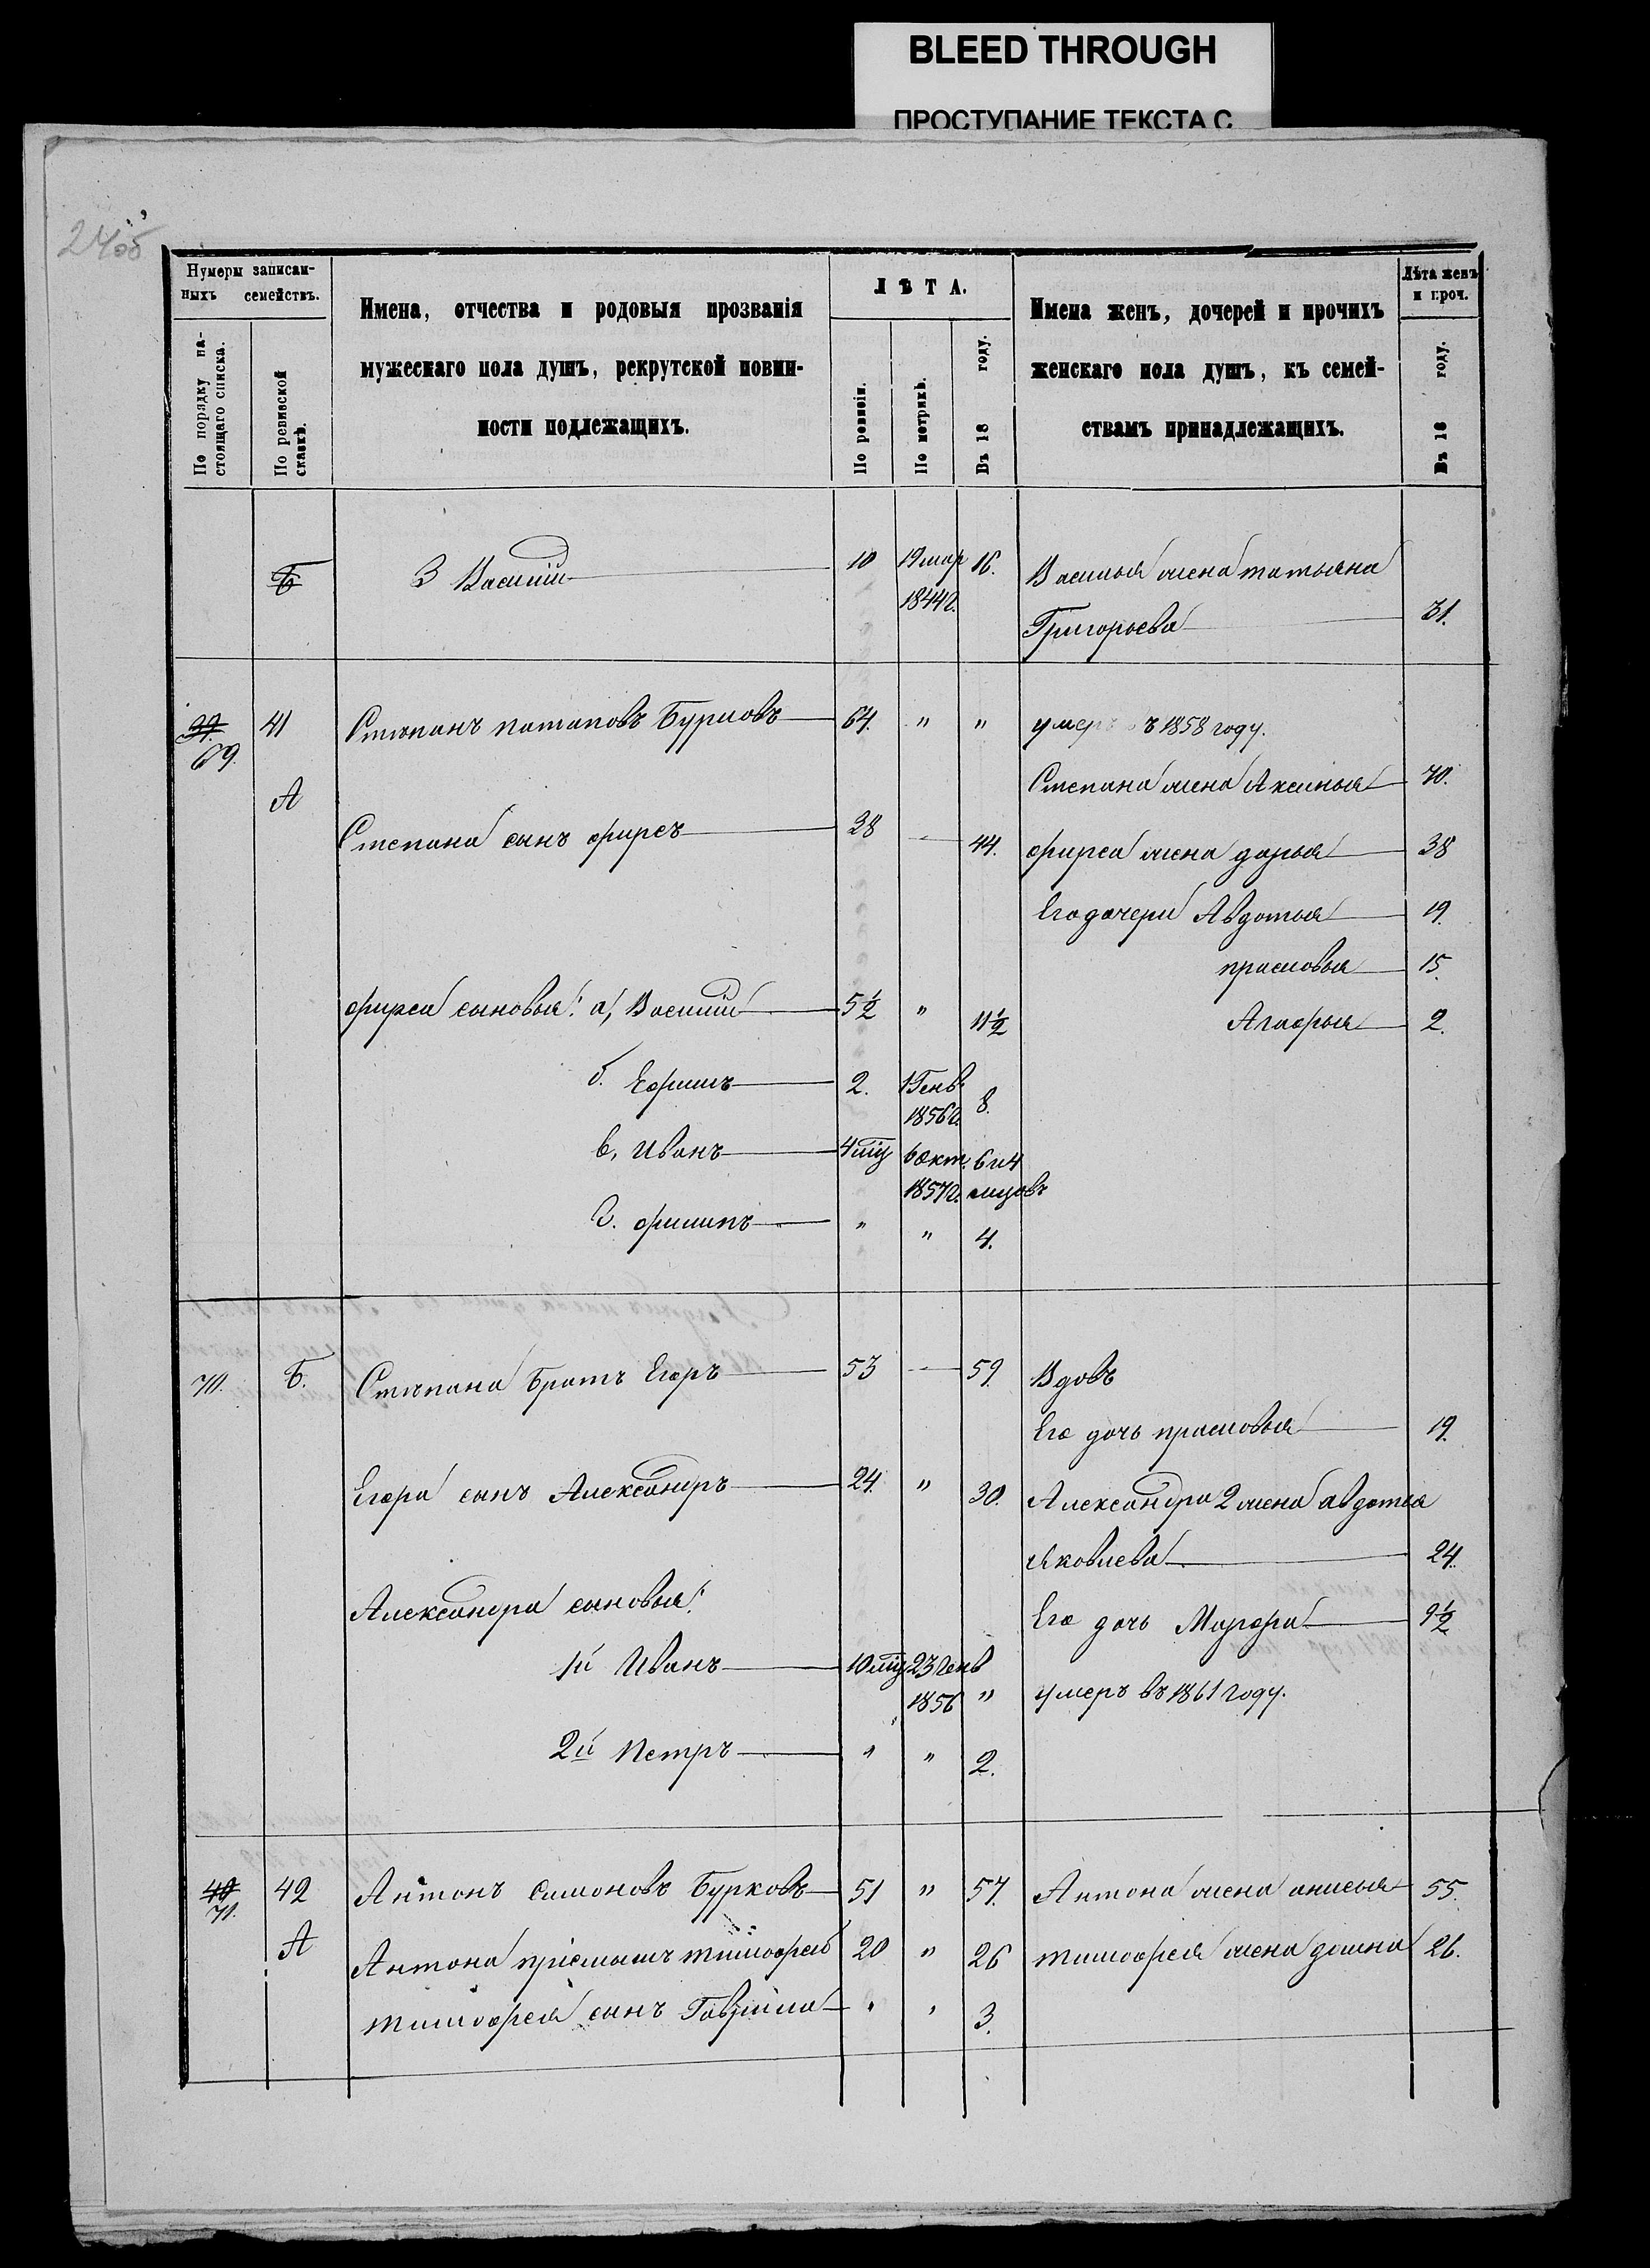 BLEED THROUGH
ПРОСТУПАНИЕ ТЕКСТА С
24об
Нумеры записан-
ныхъ семействъ.
По порядку на-
стоящаго списка.
По ревизской
сказкѣ.
Имена, отчества и родовыя прозванія
мужескаго пола душъ, рекрутской повин-
ности подлежащихъ.
ЛѢТА.
По ревизіи.
По метрикѣ.
Въ 18 году.
Имена женъ, дочерей и прочихъ
женскаго пола душъ, къ семей-
ствамъ принадлежащихъ.
Лѣта женъ
и проч.
Въ 18 году.
Б 3 Василій 10 19 мар 16. Василья жена татьяна
1844 г. Григорьева 31.
39. 41 Степанъ потаповъ Бурковъ 64. " " умеръ въ 1858 году.
69. Степана жена Аксинья 70.
А Степана сынъ фирсъ 38 — 44. фирса жена дарья 38
Его дочери Авдотья 19.
прасковья 15.
фирса сыновья: а, Василій 5½ " 11½ Агафья 2.
б. Ефимъ 2. 1 Генв 8.
1856 г.
в, Иванъ 4 мц 6 окт. 6 и 4
1857 г. мцовъ
г. филипъ " " 4.
70. Б. Степана братъ Егоръ 53 — 59. Вдовъ
Его дочь прасковья 19.
Егора сынъ Александръ 24. " 30. Александра 2 жена авдотья
Яковлева 24.
Александра сыновья: Его дочь Марфа 9½
1й Иванъ 10 мц 23 Генв
1856 " умеръ въ 1861 году.
2й Петръ " " 2.
40 42 Антонъ Симоновъ Бурковъ 51 " 57. Антона жена анисья 55.
71. А Антона пріемышъ тимофей 20 " 26 тимофея жена домна 26.
тимофея сынъ Гаврила " " 3.